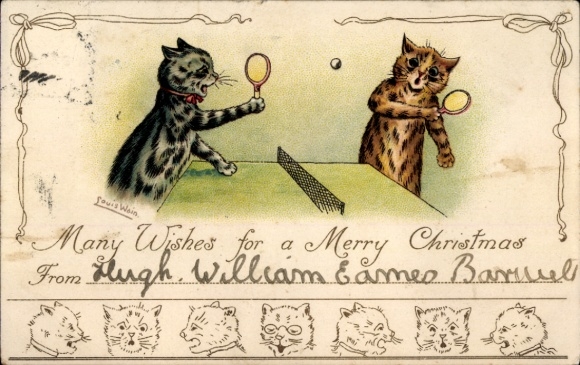 Louis Wain
Many Wishes for a Merry Christmas
From Hugh. William Eames Barwell